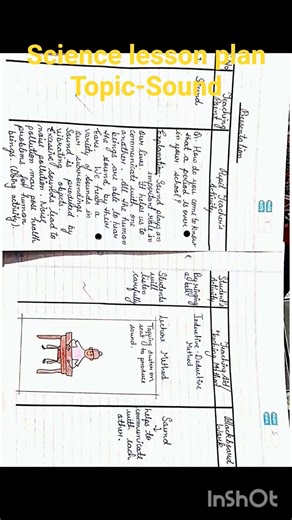 Science lesson plan
Topic-Sound
Presentation
Teaching
Point
Pupil Teacher's
Activity
Student's
Teaching Aid/
Method
Blackboard
Work
Sound
Q. How do you come to know
that a period is over
in your school?
By ringing
a bell
Inductive-Deductive
Method
Explanation: Sound plays an
important role in
our lives. It helps us to
communicate with one
another. All the human
beings are able to hear
the sound by their
ears. We hear a
variety of sounds in
our surroundings.
Sound is produced by
vibrating objects.
Excessive sounders lead to
noise pollution. Noise
pollution may pose health
problems for human
beings. (Doing activity).
Students
will
listen
carefully
Lecture Method
Tapping
to produce
sound
Sound
↓
helps to
communicate
with each
other.
InShOt